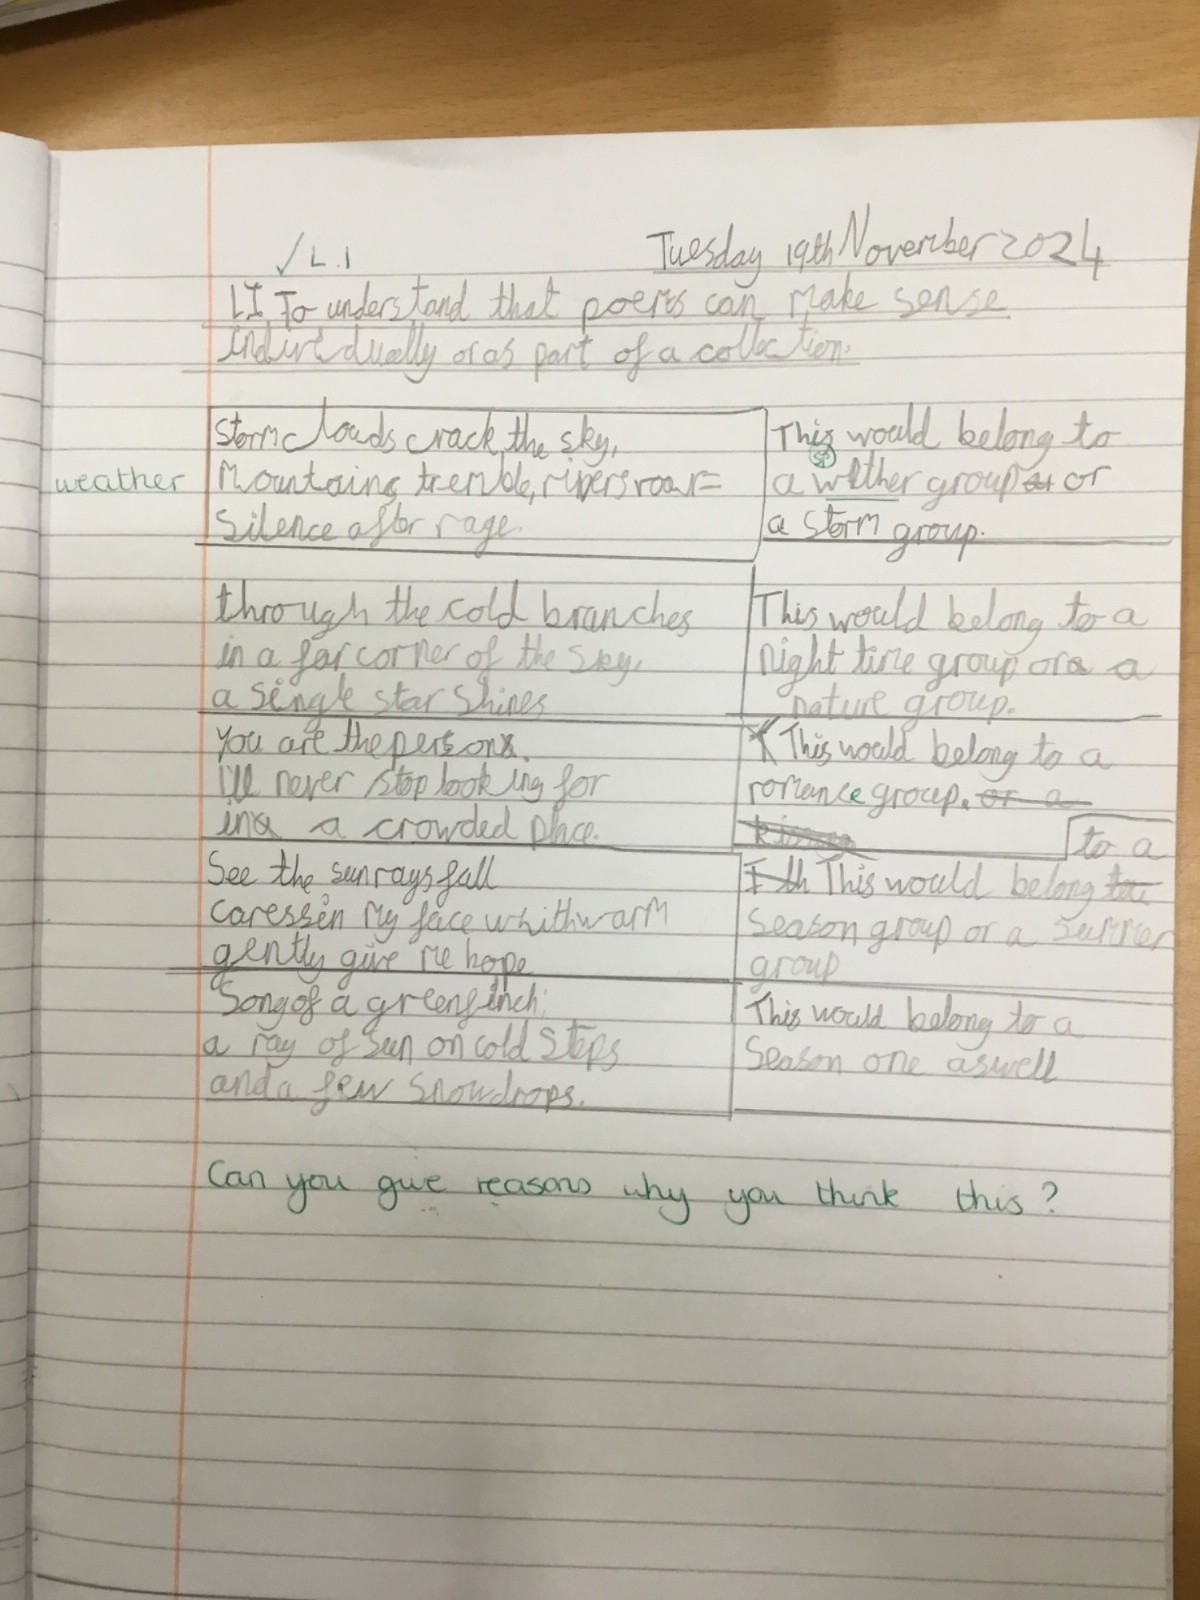 ✓ L.I
Tuesday 19th November 2024
LI To understand that poems can make sense
individually or as part of a collection.
Storm clouds crack the sky,
Mountains tremble, rivers roar=
Silence after rage.
This would belong to
sp
weather
a wether group or
a storm group.
through the cold branches
in a far corner of the sky,
a single star shines
This would belong to a
night time group or a
nature group.
You are the person
I'll never stop looking for
in a crowded place.
This would belong to a
romance group. or a
to a
See the sunrays fall
caressen my face whith warm
gently give me hope
This would belong
season group or a summer
group
Song of a greenfinch:
a ray of sun on cold steps
and a few snowdrops.
This would belong to a
season one aswell
Can you give reasons why you think this?